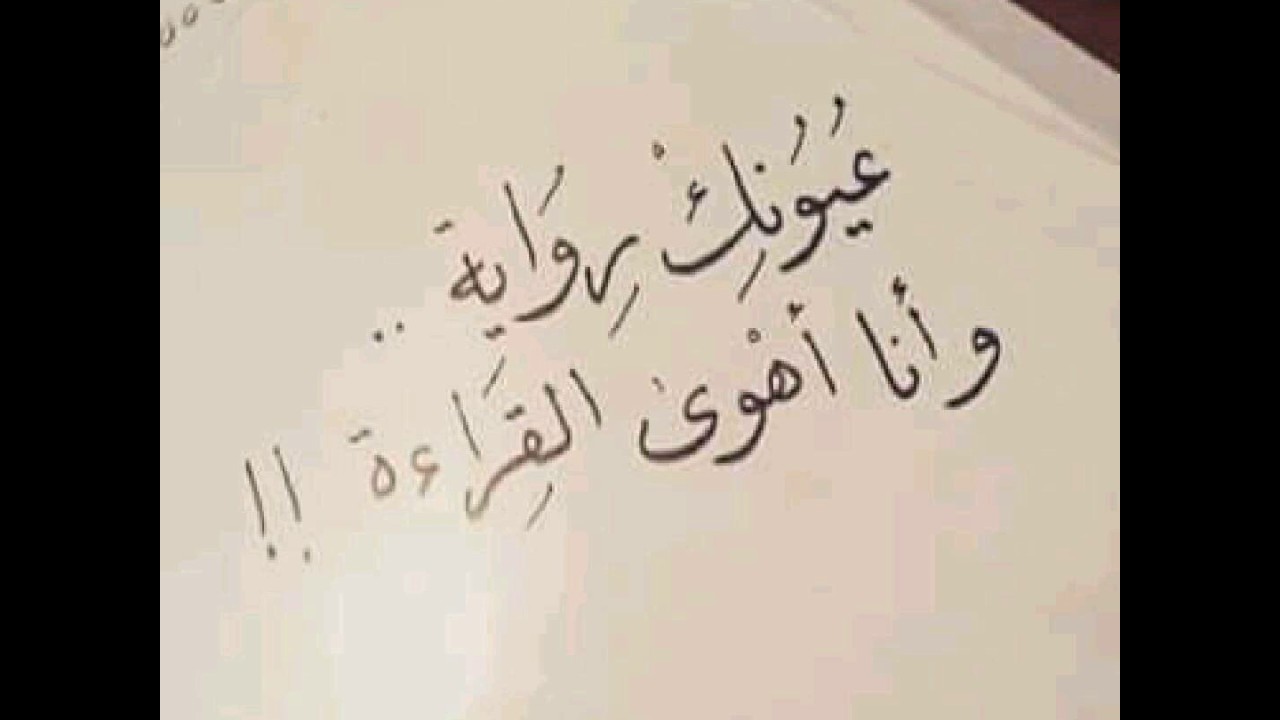 عُيُونِكْ رِوَايةَ ..
وأنا أهْوىٰ القِرَاءةَ !!